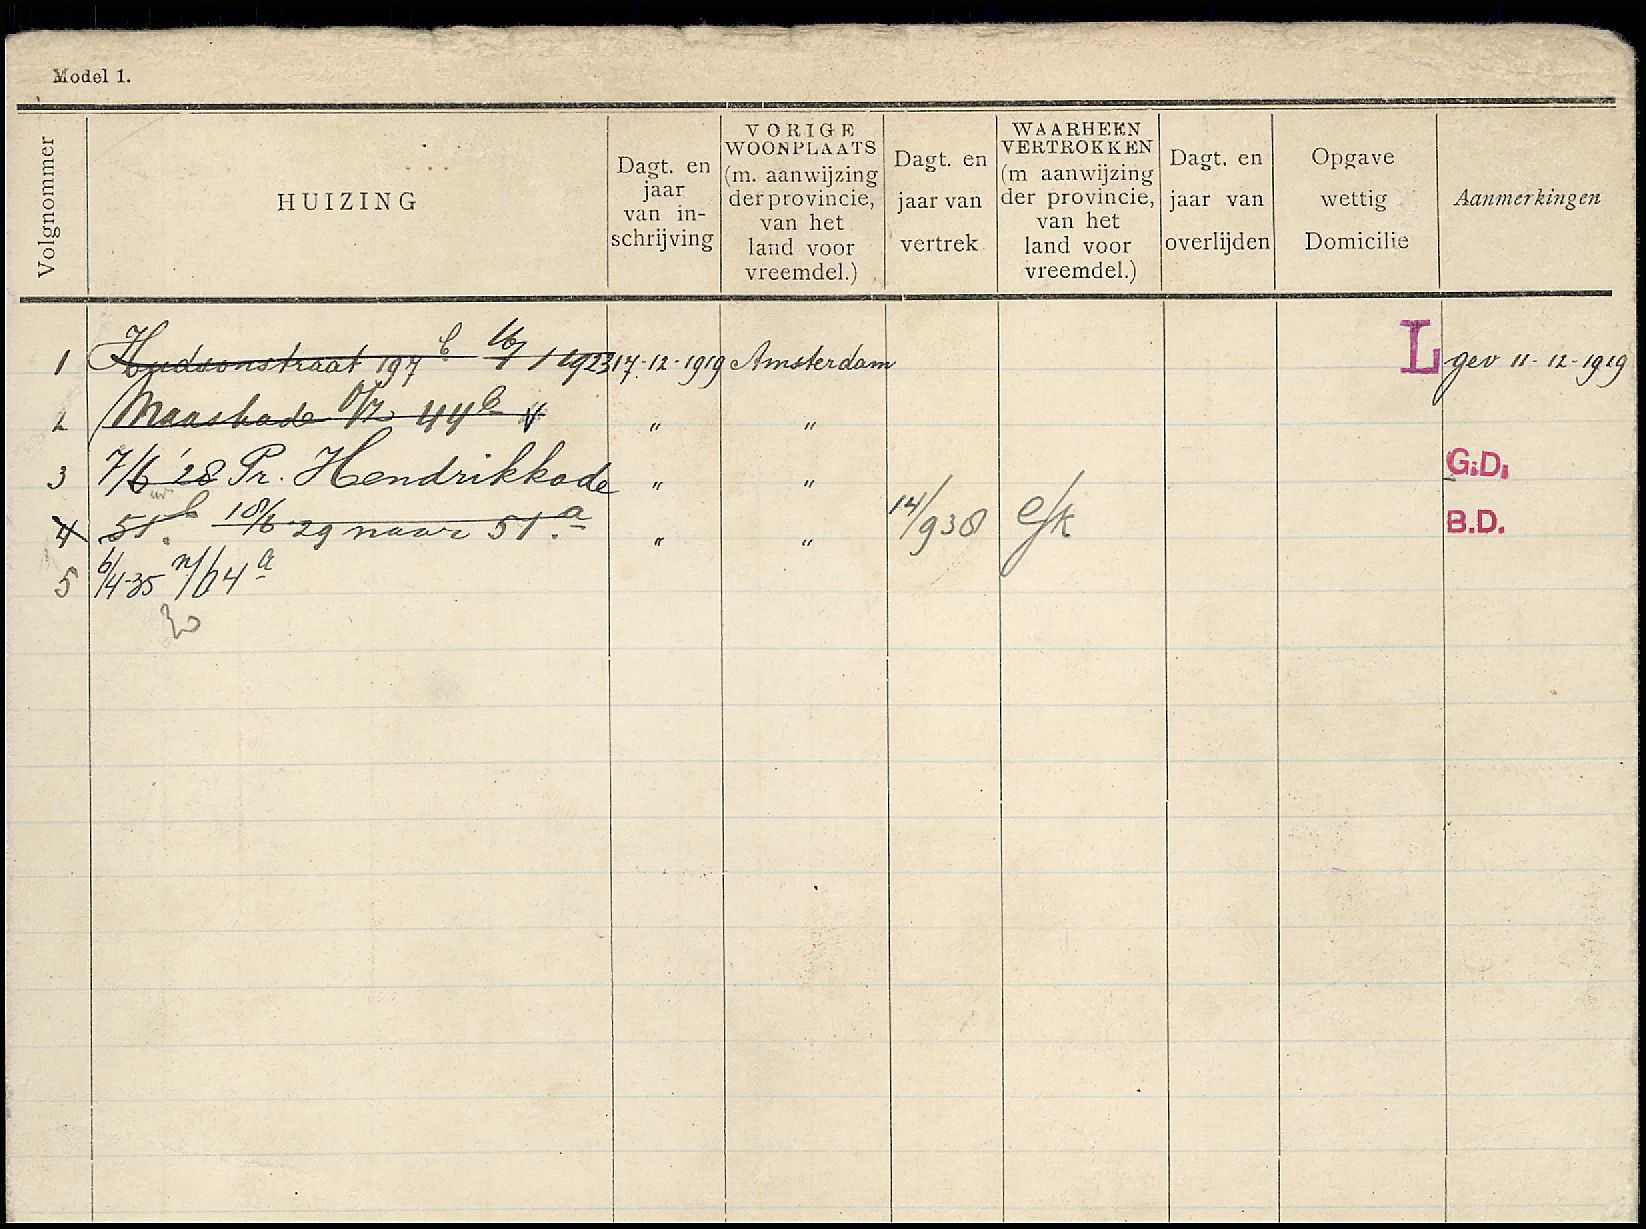 Model 1.
Volgnommer
HUIZING
Dagt. en
jaar
van in-
schrijving
VORIGE
WOONPLAATS
(m. aanwijzing
der provincie,
van het
land voor
vreemdel.)
Dagt. en
jaar van
vertrek
WAARHEEN
VERTROKKEN
(m aanwijzing
der provincie,
van het
land voor
vreemdel.)
Dagt. en
jaar van
overlijden
Opgave
wettig
Domicilie
Aanmerkingen
1 Hudsonstraat 197 b 16/1 1923 17-12-1919 Amsterdam L gev 11-12-1919
2 Maaskade 44 b " "
3 7/6 '28 Pr. Hendrikkade " " G.D.
4 51 b 18/6 29 naar 51 a " " 14/9 38 B.D.
5 6/4-35 n/64 a